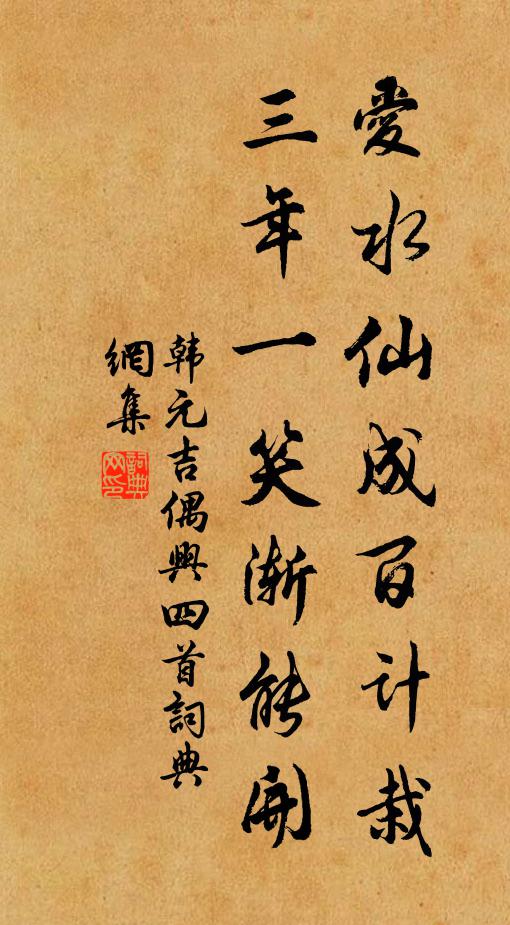 愛水仙成百计栽
三年一笑漸能開
韩元吉偶興四首詞典
網集
詞典網印